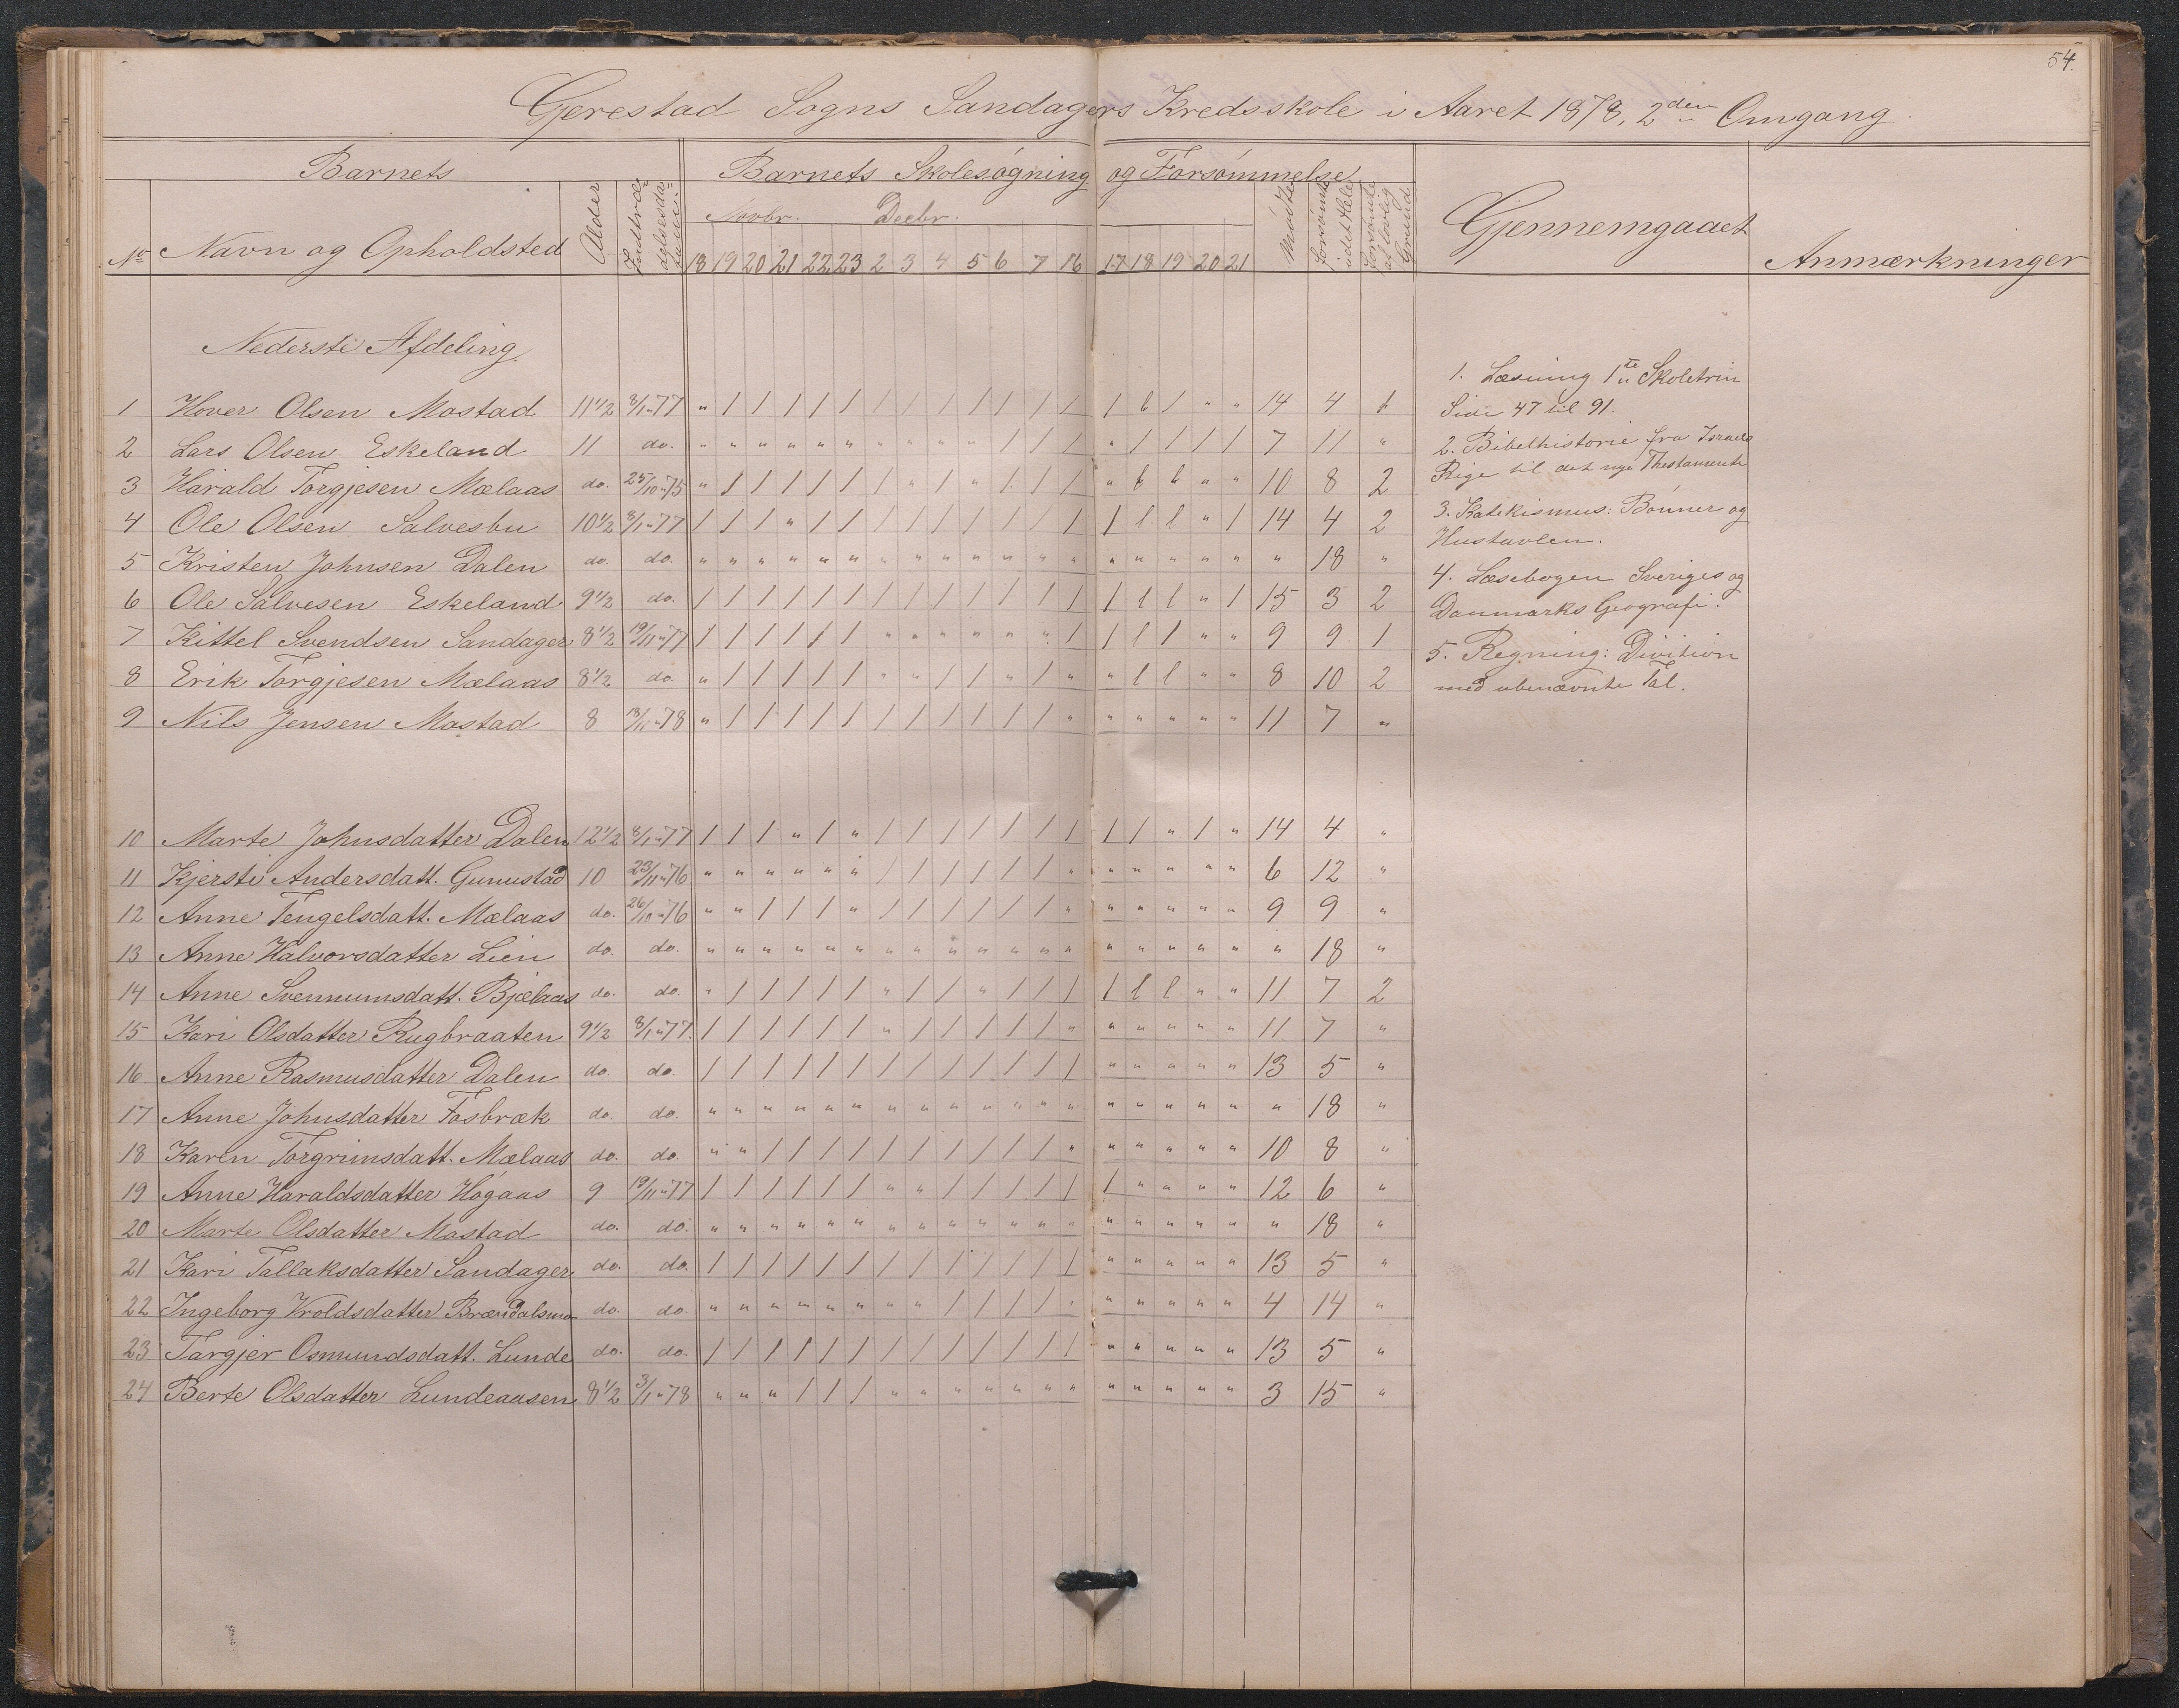 54.
Gjerestad Sogns Sandagers Kredsskole i Aaret 1878, 2den Omgang.
Barnets Barnets Skolesøgning og Forsømmelse
No Navn og Opholdsted Alder Indtræ- delsesda- Novbr. Decbr. Mødte Forsømte i det Hele Forsømte af lovlig Grund Gjennemgaaet Anmærkninger
18 19 20 21 22 23 2 3 4 5 6 7 16 17 18 19 20 21
Nederste Afdeling.
1 Hover Olsen Mostad 11 1/2 8/1 77 " / / / / / / / / / / / / / l / " " 14 4 1
2 Lars Olsen Eskeland 11 do. " " " " " " " " " " / / / " / / / / 7 11 "
3 Harald Torgjesen Mælaas do. 25/10 75 " / / / / / / " / " / / / " l l " " 10 8 2
4 Ole Olsen Salvesbu 10 1/2 8/1 77 / / / " / / / / / / / / / / l l " / 14 4 2
5 Kristen Johnsen Dalen do. do. " " " " " " " " " " " " " " " " " " " 18 "
6 Ole Salvesen Eskeland 9 1/2 do. / / / / / / / / / / / / / / l l " / 15 3 2
7 Kittel Svendsen Sandager 8 1/2 19/11 77 / / / / / / " " " " " " / / l / " " 9 9 1
8 Erik Torgjesen Mælaas 8 1/2 do. " / / / / / " " / / " / " " l l " " 8 10 2
9 Nils Jensen Mostad 8 18/11 78 " / / / / / / / / / / / " " " " " " 11 7 "
10 Marte Johnsdatter Dalen 12 1/2 8/1 77 / / / " / " / / / / / / / / / " / " 14 4 "
11 Kjersti Andersdatt. Gunustad 10 23/11 76 " " " " " " / / / / / / " " " " " " 6 12 "
12 Anne Tengelsdatt. Mælaas do. 26/10 76 " " / / / " / / / / / / " " " " " " 9 9 "
13 Anne Halvorsdatter Lien do. do. " " " " " " " " " " " " " " " " " " " 18 "
14 Anne Svennumsdatt. Bjelaas do. do. " / / / / / " / / " / / / / l l " " 11 7 2
15 Kari Olsdatter Rugbraaten 9 1/2 8/1 77 / / / / / / " / / / / / " " " " " " 11 7 "
16 Anne Rasmusdatter Dalen do. do. / / / / / / / / / / / / / " " " " " 13 5 "
17 Anne Johnsdatter Fosbræk do. do. " " " " " " " " " " " " " " " " " " " 18 "
18 Karen Torgrimsdatt. Mælaas do. do. " " / / / / / / / / / / " " " " " " 10 8 "
19 Anne Haraldsdatter Høgaas 9 19/11 77 / / / / / / " " / / / / / / " " " " 12 6 "
20 Marte Olsdatter Mostad do. do. " " " " " " " " " " " " " " " " " " " 18 "
21 Kari Tallaksdatter Sandager do. do. / / / / / / / / / / / / / " " " " " 13 5 "
22 Ingeborg Vroldsdatter do. do. " " " " " " " " / / / / " " " " " " 4 14 "
23 Targjer Osmundsdatt. Lunde do. do. / / / / / / / / / / / / / " " " " " 13 5 "
24 Berte Olsdatter Lundeaasen 8 1/2 3/1 78 " " " / / / " " " " " " " " " " " " 3 15 "
1. Læsning 1ste Skoletrin
Side 47 til 91.
2. Bibelhistorie fra Israels
Rige til det nye Thestamente
3. Katekismus: Bønner og
Hustavlen.
4. Læsebogen Sveriges og
Danmarks Geografi.
5. Regning: Division
med ubenævnte Tal.